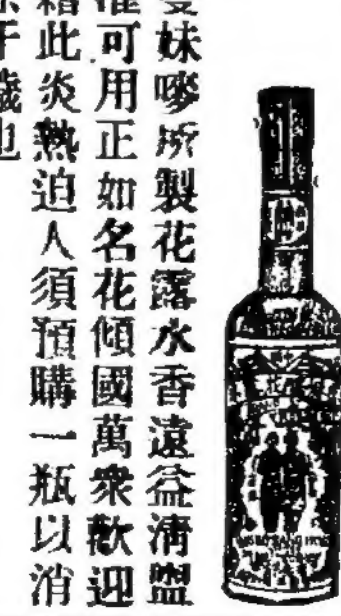 雙妹嘜所製花露水香遠益清盥
濯可用正如名花傾國萬衆歡迎
此炎熱迫人須預購一瓶以消